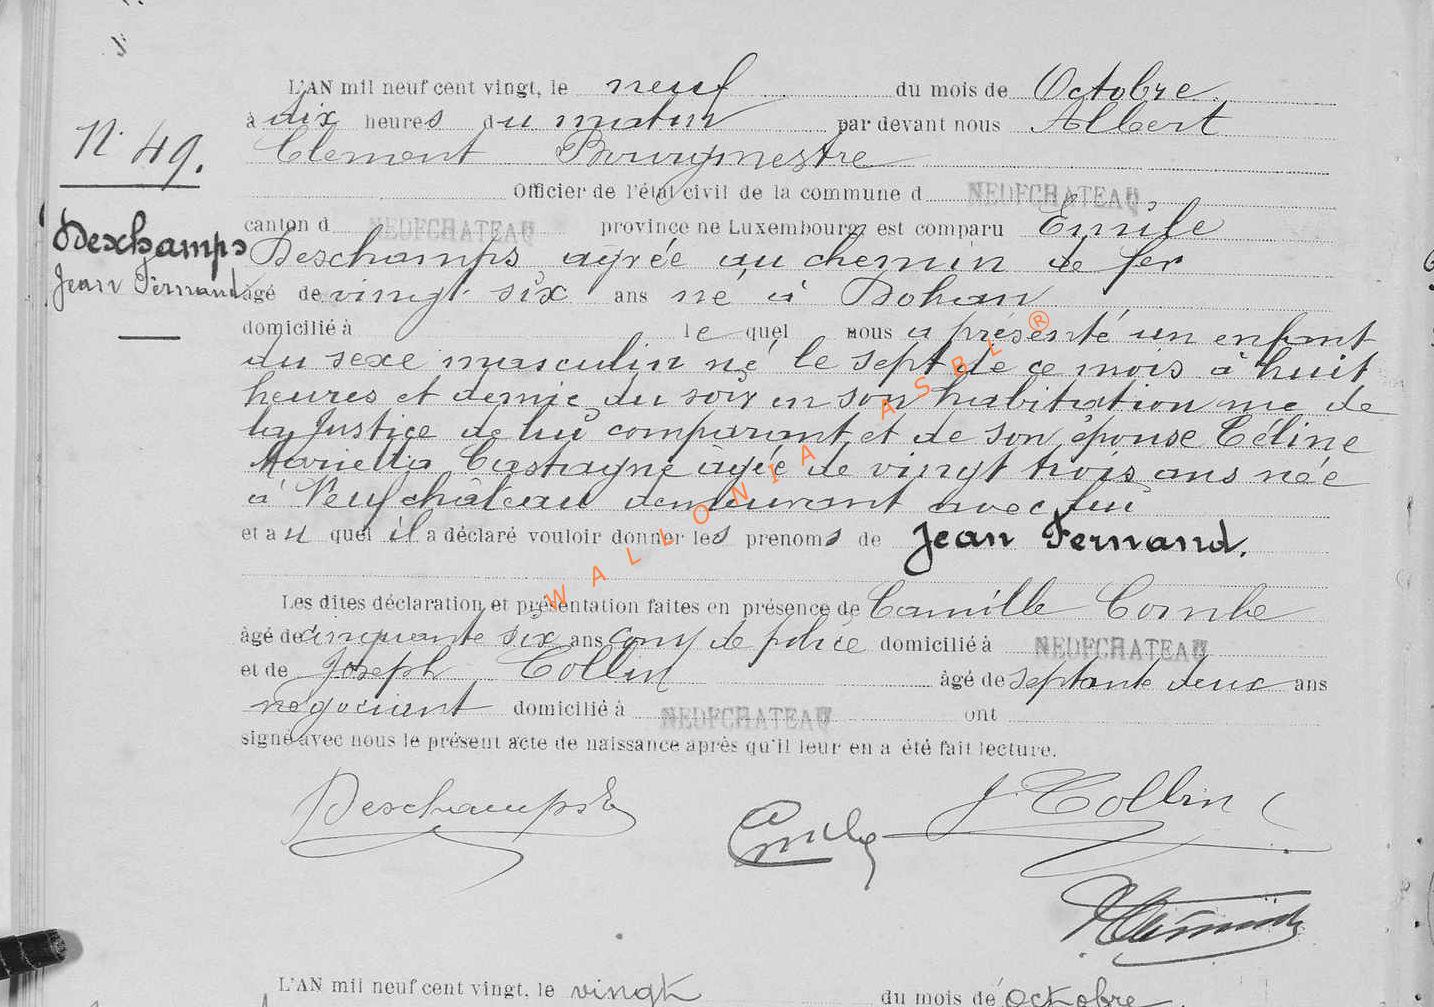 L'AN mil neuf cent vingt, le neuf du mois de Octobre
N° 49.
à dix heures du matin par devant nous Albert
Clement Bourgmestre
Officier de l'état civil de la commune d NEUFCHATEAU
canton d NEUFCHATEAU province de Luxembourg, est comparu Emile
Deschamps
Jean Fernand
Deschamps agréé au chemin de fer
âgé de vingt six ans né à Bohan
domicilié à le quel nous a présenté un enfant
du sexe masculin né le sept de ce mois à huit
heures et demie du soir en son habitation rue de
la Justice de lui comparant et de son épouse Céline
Marietta Castagne âgée de vingt trois ans née
à Neufchâteau demeurant avec lui
et au quel il a déclaré vouloir donner les prenoms de Jean Fernand.
WALLONIA ASBL ®
Les dites déclaration et présentation faites en présence de Camille Combe
âgé de cinquante six ans com de police domicilié à NEUFCHATEAU
et de Joseph Collin âgé de septante deux ans
négociant domicilié à NEUFCHATEAU ont
signé avec nous le présent acte de naissance après qu'il leur en a été fait lecture.
Deschamps E
J. Collin
L'AN mil neuf cent vingt, le vingt du mois de octobre